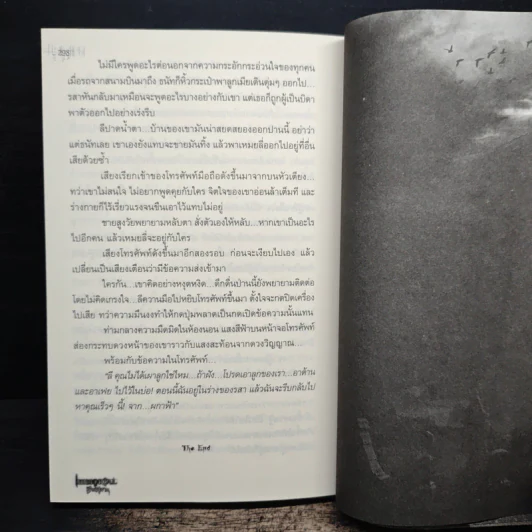 ไม่มีใครพูดอะไรต่อนอกจากความกระอักกระอ่วนใจของทุกคน
เมื่อรถจากสนามบินมาถึง ธนัทก็หิ้วกระเป๋าพาลูกเมียเดินดุ่มๆ ออกไป...
รสาหันกลับมาเหมือนจะพูดอะไรบางอย่างกับเขา แต่เธอก็ถูกผู้เป็นบิดา
พาตัวออกไปอย่างเร่งรีบ
ลีปาดน้ำตา...บ้านของเขามันน่าสยดสยองออกปานนี้ อย่าว่า
แต่ธนัทเลย เขาเองยังแทบจะขายมันทิ้ง แล้วพาเหมยลี่ออกไปอยู่ที่อื่น
เสียด้วยซ้ำ
เสียงเรียกเข้าของโทรศัพท์มือถือดังขึ้นมาจากบนหัวเตียง...
ทว่าเขาไม่สนใจ ไม่อยากพูดคุยกับใคร จิตใจของเขาอ่อนล้าเต็มที และ
ร่างกายก็ไร้เรี่ยวแรงจนขืนเอาไว้แทบไม่อยู่
ชายสูงวัยพยายามหลับตา สั่งตัวเองให้หลับ...หากเขาเป็นอะไร
ไปอีกคน แล้วเหมยลี่จะอยู่กับใคร
เสียงโทรศัพท์ดังขึ้นมาอีกสองรอบ ก่อนจะเงียบไปเอง แล้ว
เปลี่ยนเป็นเสียงเตือนว่ามีข้อความส่งเข้ามา
ใครกัน...เขาคิดอย่างหงุดหงิด...ดึกดื่นป่านนี้ยังพยายามติดต่อ
โดยไม่คิดเกรงใจ...ลีควานมือไปหยิบโทรศัพท์ขึ้นมา ตั้งใจจะกดปิดเครื่อง
ไปเสีย ทว่าความมึนงงทำให้กดปุ่มพลาดเป็นกดเปิดข้อความนั้นแทน
ท่ามกลางความมืดมิดในห้องนอน แสงสีฟ้าบนหน้าจอโทรศัพท์
ส่องกระทบดวงหน้าของเขาราวกับแสงสะท้อนจากดวงวิญญาณ...
พร้อมกับข้อความในโทรศัพท์...
"ลี คุณไม่ได้เผาลูกใช่ไหม...ถ้าฝัง...โปรดเอาลูกของเรา...อาด้าน
และอาเฟย ไปไว้ในบ่อ! ตอนนี้ฉันอยู่ในร่างของรสา แล้วฉันจะรีบกลับไป
หาคุณเร็วๆ นี้! จาก...ผกาฟ้า"
The End